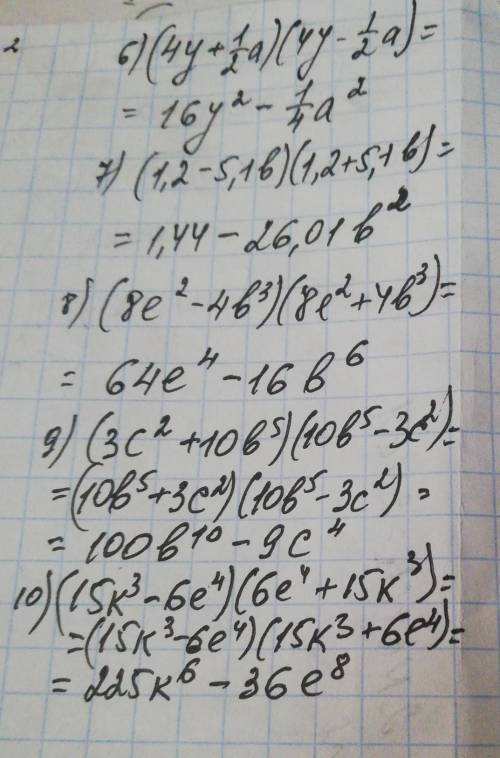 2
6) (4y + 1/2 a)(4y - 1/2 a) =
= 16y² - 1/4 a²
7) (1,2 - 5,1в)(1,2 + 5,1в) =
= 1,44 - 26,01в²
8) (8e² - 4в³)(8e² + 4в³) =
= 64e⁴ - 16в⁶
9) (3c² + 10в⁵)(10в⁵ - 3c²) =
= (10в⁵ + 3c²)(10в⁵ - 3c²) =
= 100в¹⁰ - 9c⁴
10) (15к³ - 6e⁴)(6e⁴ + 15к³) =
= (15к³ - 6e⁴)(15к³ + 6e⁴) =
= 225к⁶ - 36e⁸